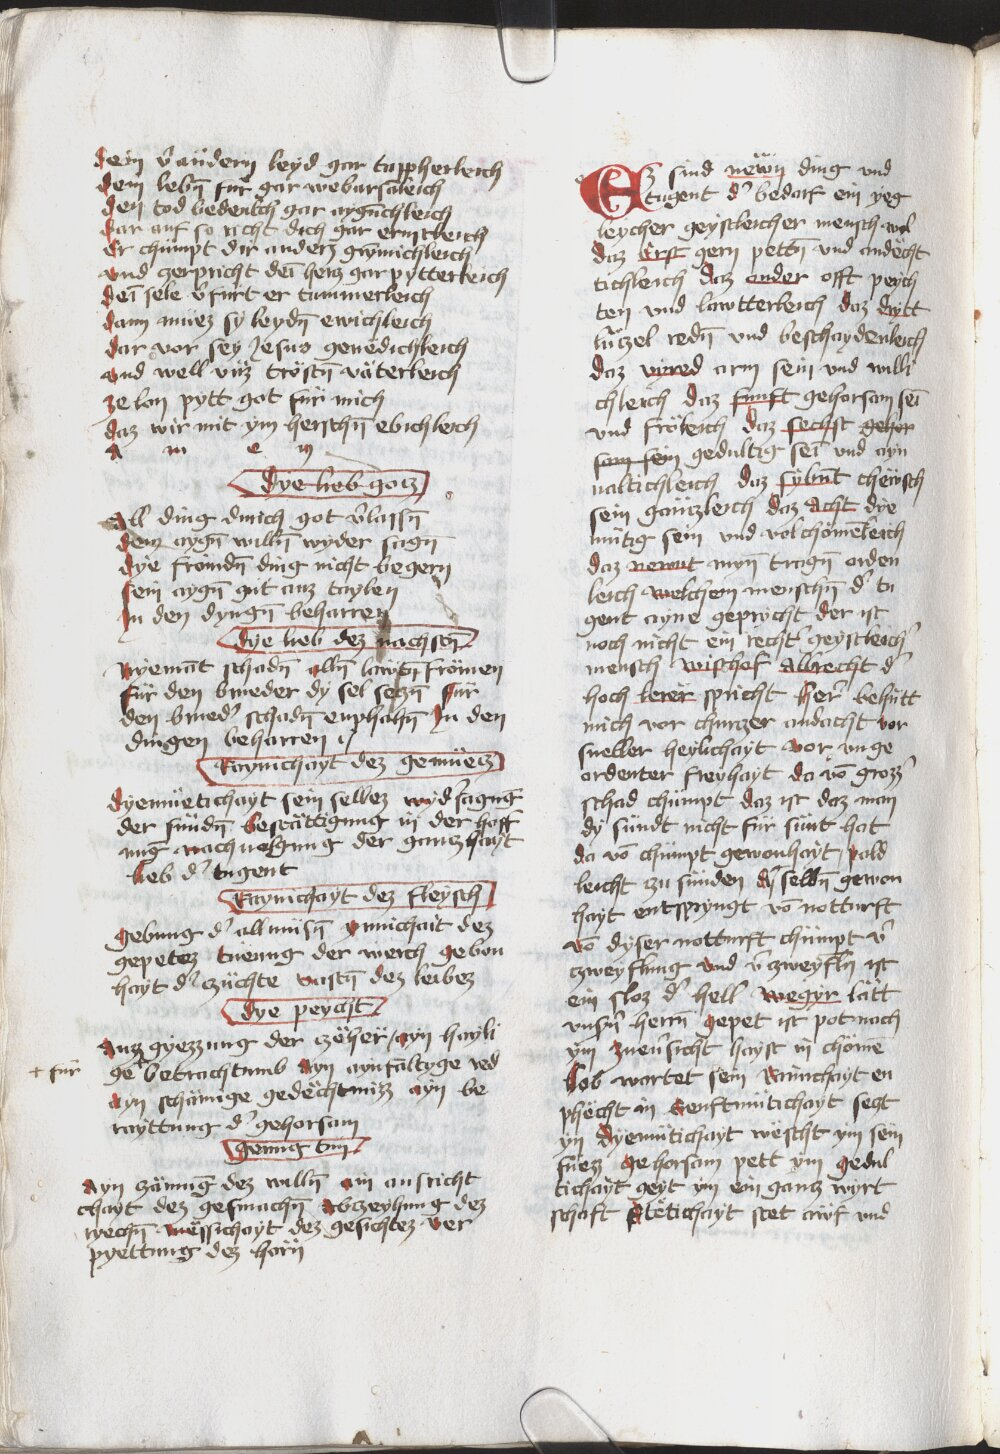 dein v̄andern leyd gar tapherleich
dein lebn̄ für gar webarsaleich
den tod bedenkch gar aygnchleich
dar auf so richt dich gar ernstleich
Er chumpt dir anderz grymichleich
vnd zerpricht dei hertz gar pytterleich
deī sele v̄fürt er tummerleich
dann müez sy leydn̄ ewichleich
dar vor sey Jesus genëdichleich
vnd well vnz tröstn̄ väterleich
ze lon pytt got für mich
daz wir mit ym herschn̄ ebichleich
A m e n
Dye lieb gotz
All ding durich got v̄lassn̄
dem aygn̄ willn̄ wyder sagn̄
dye frömdn̄ ding nicht begern
sein aygn̄ gut auz taylen
In den dyngn̄ beharren
dye lieb dez nachstn̄
Nyemāt schadn̄ alln̄ lawtn̄ frömen
für den brueder dy sel seczn̄ für
den brued̄ schadn̄ enphahn̄ In den
dingen beharren
Raynichayt dez gemüetz
dyemüetichayt sein selbez wyd̄sagung
der sündn̄ bestättigung in der hoff
nung nachuolgung der gantzhayt
lieb d̄ tugent
Raynichayt dez fleysch
gebung d̄ allmüsn̄ ynnichait dez
gepetez tüenng der werch gebon
hayt d̄ züchte vastn̄ dez leibez
dye peycht
Auzgyezzung der zëher / ayn hayli
+ für
ge betrachtumb Ayn aynfältyge red
ayn schämige gedëchtnüzz ayn be
rayttung d̄ gehorsam
genug tun
Ayn zämug dez willn̄ ain ausricht
chayt dez gesmachn̄ Abczeyhung dez
rechn̄ mëssichayt dez gesichtez ver
pyettung dez hörn̄
Ez sind newn ding vnd
tugent d̄ bedarf ein yeg
leycher geystleicher mensch wol
daz Erst gern pettn̄ vnd andëcht
tichleich daz ander offt peych
ten vnd lawtterleich daz dritt
lützel redn̄ vnd beschaydenleich
daz vired arm sein vnd willi
chleich daz funft gehorsam seī
vnd fröleich daz sechst gehor
sam sein gedultig seī vnd ayn
ualtichleich daz sybnt chëusch
sein gäntzleich daz Acht dye
mütig sein vnd volchömēleich
daz newnt mynn̄ tragn̄ orden
leich welchem menschn̄ d̄ tu
gent ayne gepricht der ist
noch nicht ein recht̄ geystleich̄
mensch Wischof Albrecht d̄
hoch lerer spricht Her behütt
mich vor churczer andacht vor
sneller heylichayt vor unge
ordenter freyhayt da vō grozz̄
schad chümpt daz ist daz man
dy sündt nicht für sünt hat
da vō chümpt gewonhayt / pald
leicht zu sünden dy selbn̄ gewon
hayt entspryngt vō notturft
vō dyser notturft chümpt v̄
zweyflung vnd v̄zweyfln̄ ist
ein sloz d̄ hell Wegyr lätt
vnsn̄ herrn̄ gepet ist pot nach
ym zuuersicht hayst in chömē
Lob wartet sein Raynchayt en
phëcht in Senftmütichayt sect
yn dyemütichayt wëscht ym sein
füezz gehorsam pett ym gedul
tichayt geyt ym ein gantz wyrt
schaft Stëtichayt stet auf vnd